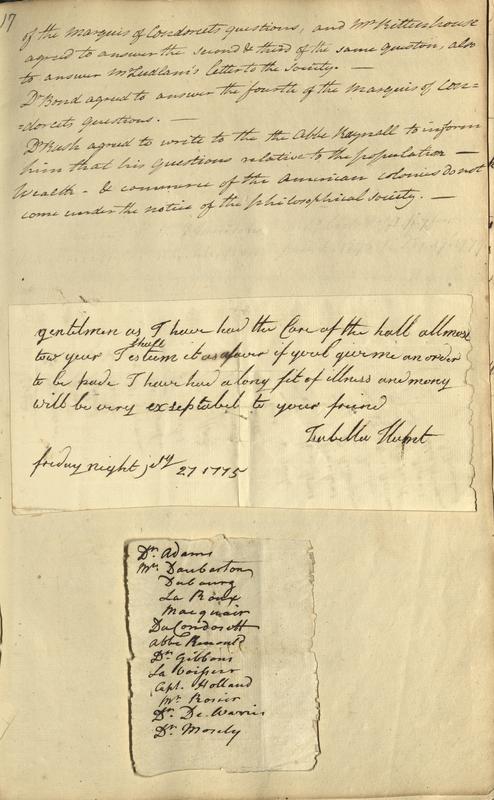 17
of the Marquis of Condorcets questions, and Mr Rittenhouse
agreed to answer the second & third of the same question, also
to answer Mr Ludlam's letter to the Society. —
Dr Bond agreed to answer the fourth of the Marquis of Con=
=dorcets questions. —
Dr Rush agreed to write to the the Abbe Raynall to inform
him that his questions relative to the population —
Wealth - & commerce of the American colonies do not
come under the notice of the philosophical Society. —
gentilmen as I have had the Care of the hall allmost
tow year I shall esteim it as a favor if youl give me an order
to be pade I have had a long fit of illness and mony
will be very exseptabel to your friend
friday night jary 27 1775
Dr. Adams
Mr. Daubarton
Dubourg
La Roux
Macquair
Du Condosett
Abbé
Dr. Gibbons
La Voisier
Capt. Holland
Mr. Rosier
Dr. De Warris
Dr. Mosely